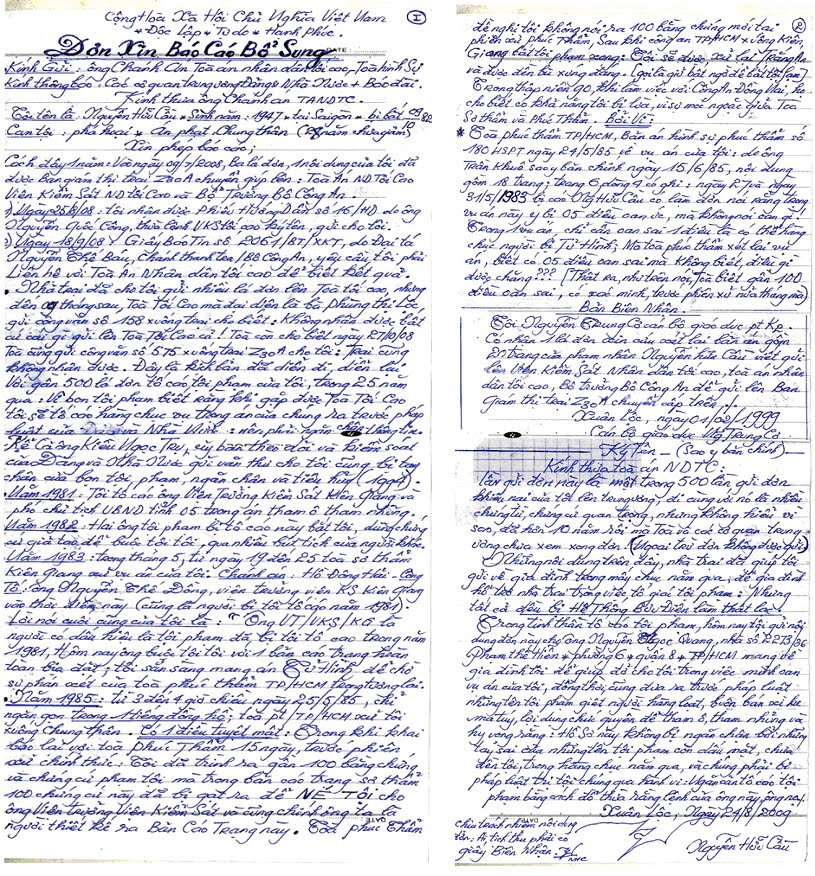 Cộng Hòa Xã Hội Chủ Nghĩa Việt Nam
* Độc Lập * Tự do * Hạnh Phúc.
I
Đơn Xin Báo Cáo Bổ Sung
DATE:
Kính Gửi: ông Chánh Án Toà án nhân dân tối cao, Toà hình Sự
Kính thông báo: Các cơ quan trung ương Đảng & Nhà Nước + Báo đài.
Kính thưa ông Chánh án TANDTC.
Tôi tên là: Nguyễn Hữu Cầu * Sinh năm: 1947 * tại Saigon * bị bắt
Can tội: phá hoại * Án phạt: Chung thân
Xin phép báo cáo;
Cách đây 1 năm: Vào ngày 09/7/2008, Ba lá đơn, 1 nội dung của tôi đã
được Ban giám thị trại Z30A chuyển giúp lên: Toà án ND Tối Cao
Viện Kiểm Sát ND Tối Cao và Bộ Trưởng Bộ Công An.
tôi nhận được Phiếu Hướng Dẫn số 16/HD do ông
Nguyễn Quốc Công, thừa lệnh VKS tối cao ký tên, gửi cho tôi.
2) Ngày 18/9/08: Giấy Báo Tin số 2061/BT/XKT, do Đại tá
Nguyễn Thế Báu, Chánh thanh tra/Bộ Công An, yêu cầu tôi phải
Liên hệ với Toà Án Nhân dân tối cao để biết kết quả.
Nhà trại đã cho tôi gửi nhiều lá đơn lên Toà tối cao, nhưng
đến tháng sau, Toà Tối Cao mà đại diện là bà Phùng thị Lộc
gửi công văn số 158 xuống trại cho biết: Không nhận được bất
cứ cái gì gửi lên Toà Tối Cao cả! Toà còn cho biết ngày 27/10/08
Toà cũng gửi công văn số 575 xuống trại Z30A cho tôi: trại cũng
không nhận được. Đây là kịch bản đã diễn đi, diễn lại
Với gần 500 lá đơn tố cáo tội phạm của tôi, trong 25 năm
qua: Vì bọn tội phạm biết rằng khi gặp được Toà Tối Cao
tôi sẽ tố cáo hàng chục vụ trọng án của chúng ra trước pháp
luật của Đảng và Nhà Nước: nên phải ngăn chặn thông tin.
Kế Cả ông Kiều Ngọc Trụ, ủy ban theo dõi và kiểm soát
của Đảng và Nhà Nước gửi văn thư cho tôi cũng bị tay
chân của bọn tội phạm, ngăn chặn và tiêu hủy (1999)
Năm 1981: Tôi tố cáo ông Viện Trưởng Kiểm Sát Kiên Giang và
phó chủ tịch UBND tỉnh 05 trọng án tham ô tham nhũng.
Năm 1982: Hai ông tội phạm bị tố cáo này bắt tôi, dùng chứng
cứ giả tạo để buộc tội tôi, qua nhiều bút tích của người khác.
Năm 1983: trong tháng 5, từ ngày 19 đến 25 toà sơ thẩm
Kiên Giang xử vụ án của tôi. Chánh án: Hồ Đông Hải. Công
Tố: ông Nguyễn Thế Đồng, viện trưởng viện KS Kiên Giang
vào thời điểm này (Cũng là người bị tôi tố cáo năm 1981)
Lời nói cuối cùng của tôi là: "Ông VT/VKS/KG là
người có dấu hiệu là tội phạm đã bị tôi tố cáo trong năm
1981, Hôm nay ông buộc tội tôi với 1 bản cáo trạng hoàn
toàn bịa đặt; tôi sẵn sàng mang án Tử Hình để chờ
sự phán xét của toà phúc thẩm TP/HCM trong tương lai.
Năm 1985: từ 3 đến 4 giờ chiều ngày 25/5/85, chỉ
ngắn gọn trong 1 tiếng đồng hồ; toà pt/TP/HCM xử tôi
xuống Chung thân. Có 1 điều tuyệt mật: Trong khi khai
báo lại với toà Phúc Thẩm 15 ngày, trước phiên
xử chính thức: Tôi đã trình ra gần 100 bằng chứng
và chứng cứ phạm tội mà trong bản cáo trạng sơ thẩm
100 chứng cứ này đã bị gạt ra để NÉ TỘI cho
ông Viện Trưởng Viện Kiểm Sát và cũng chính ông ta là
người thiết kế ra Bản Cáo Trạng này. Toà phúc Thẩm
2
đề nghị tôi không nói ra 100 bằng chứng mới tại
phiên xử phúc Thẩm, Sau khi công an TP/HCM & Kiên
Giang bắt tội phạm xong: Tôi sẽ được xử lại Trắng Án
và được đền bù xứng đáng.
Trong thập niên 90, khi làm việc với Công An Đồng Nai, họ
cho biết có khả năng tôi bị lừa, vì sự móc ngoặc giữa Toà
Sơ thẩm và Phúc Thẩm. Bởi Vì:
* Toà phúc thẩm TP/HCM, Bản án hình sự phúc thẩm số
180 HSPT ngày 24/5/85 về vụ án của tôi: do ông
Trần Khuê sao y bản chính ngày 15/6/85, nội dung
gồm 18 trang; trang 6 dòng 9 có ghi:
31/5/1983 bị cáo Ng Hữu Cầu có làm đơn nói rằng trong
vụ án này, y bị 05 điều oan ức, mà không nói oan gì!
Trong 1 vụ án, chỉ cần oan sai 1 điều là có thể hàng
chục người bị Tử Hình; Mà toà phúc thẩm xét lại vụ
án, biết có 05 điều oan sai mà không biết, điều gì
được chăng??? (Thật ra, như trên nói, Toà biết gần 100
điều oan sai, có xác minh, trước phiên xử nửa tháng mà)
Bản Biên Nhận.
Tôi Nguyễn Trung Cỏ cán bộ giáo dục
Có nhận 1 lá đơn xin cứu xét lại bản án gồm
trang của phạm nhân Nguyễn Hữu Cầu viết gửi
lên Viện Kiểm Sát Nhân dân tối cao, toà án nhân
dân tối cao, Bộ trưởng Bộ Công An để gửi lên Ban
Giám thị trại Z30A chuyển cấp trên./.
Xuân Lộc, ngày 01/02/1999
Cán bộ giáo dục Ng Trung Cỏ
Ký Tên - (Sao y bản chính)
Kính thưa toà án NDTC:
lần gửi đơn này là một trong 500 lần gửi đơn
khiếu nại của tôi lên trung ương, đi cùng với nó là nhiều
chứng từ, chứng cứ quan trọng, nhưng không hiểu vì
sao, đã hơn 10 năm rồi mà Toà và các cơ quan trung
ương chưa xem xong đơn. (Ngoại trừ đơn không được gửi)
Những nội dung trên đây, nhà trại đã giúp tôi
gửi về gia đình trong mấy chục năm qua, để gia đình
hỗ trợ nhà trại trong việc tố giác tội phạm: Nhưng
tất cả đều bị Hệ Thống Bưu Điện làm thất lạc.
Trong tinh thần tố cáo tội phạm, hôm nay tôi gửi nội
dung đơn này cho ông Nguyễn Ngọc Quang, nhà số
Phạm thế Hiển * phường 6 * quận 8 * TP/HCM mang về
gia đình tôi để giúp đỡ cho tôi trong việc minh oan
vụ án của tôi, đồng thời cũng đưa ra trước pháp luật
những tên tội phạm giết người hàng loạt, buôn bán xì ke
ma túy, lợi dụng chức quyền để tham ô, tham nhũng và
hy vọng rằng: Hồ Sơ này không bị ngăn chặn bởi những
tay sai của những tên tội phạm còn dấu mặt, chặn
đơn tôi, trong hàng chục năm qua, và chúng phải bị
pháp luật thi tội chúng qua hành vi: Ngăn cản tố cáo tội
phạm bằng cách đổ thừa rằng lệnh của ông này, ông nọ.
Xuân Lộc, Ngày 24/8/2009
chịu trách nhiệm nội dung
đơn; Ai, tịch thu phải có
giấy Biên Nhận.
NHC
Nguyễn Hữu Cầu
DATE: